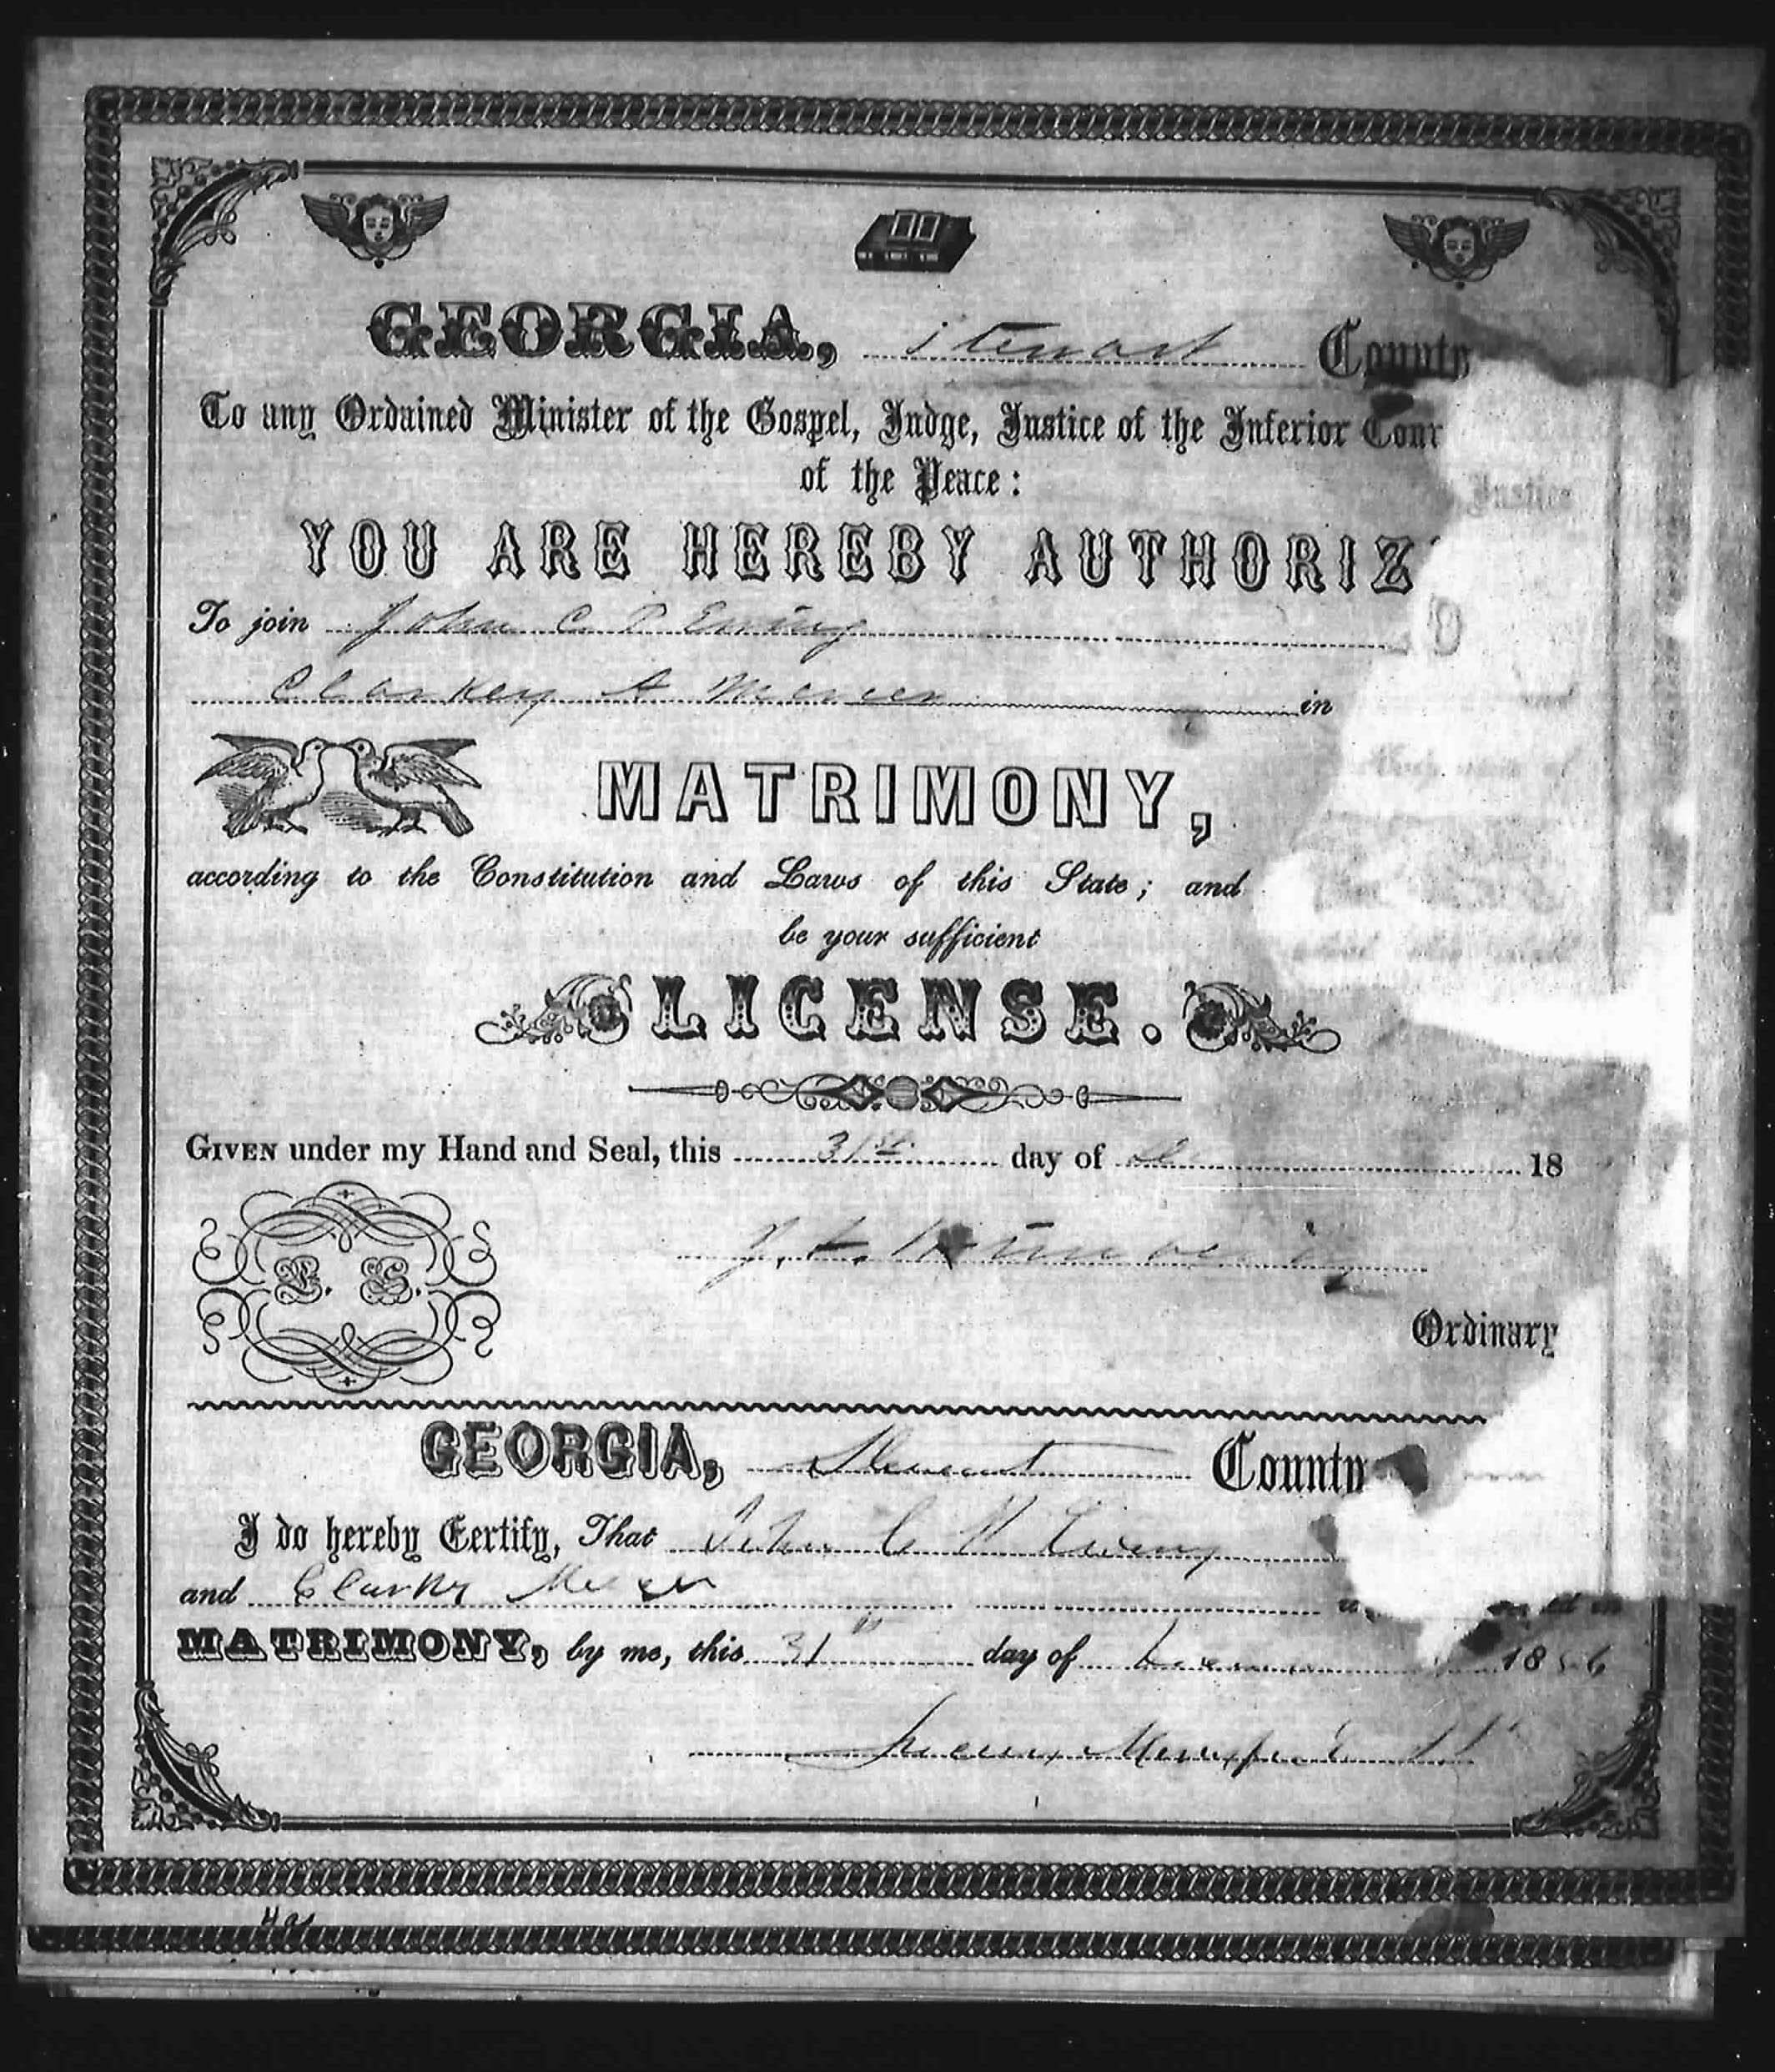 GEORGIA, Stewart County
To any Ordained Minister of the Gospel, Judge, Justice of the Inferior Cour
Justice
of the Peace:
YOU ARE HEREBY AUTHORIZ
To join John C. P Ewing
Clarkey A Mercer in
MATRIMONY,
according to the Constitution and Laws of this State; and
be your sufficient
LICENSE.
GIVEN under my Hand and Seal, this 31st day of De 18
L. S.
Ordinary
GEORGIA, Stewart County
I do hereby Certify, That John C Ewing
and Clarky Mercer
MATRIMONY, by me, this 31 day of 1856
49